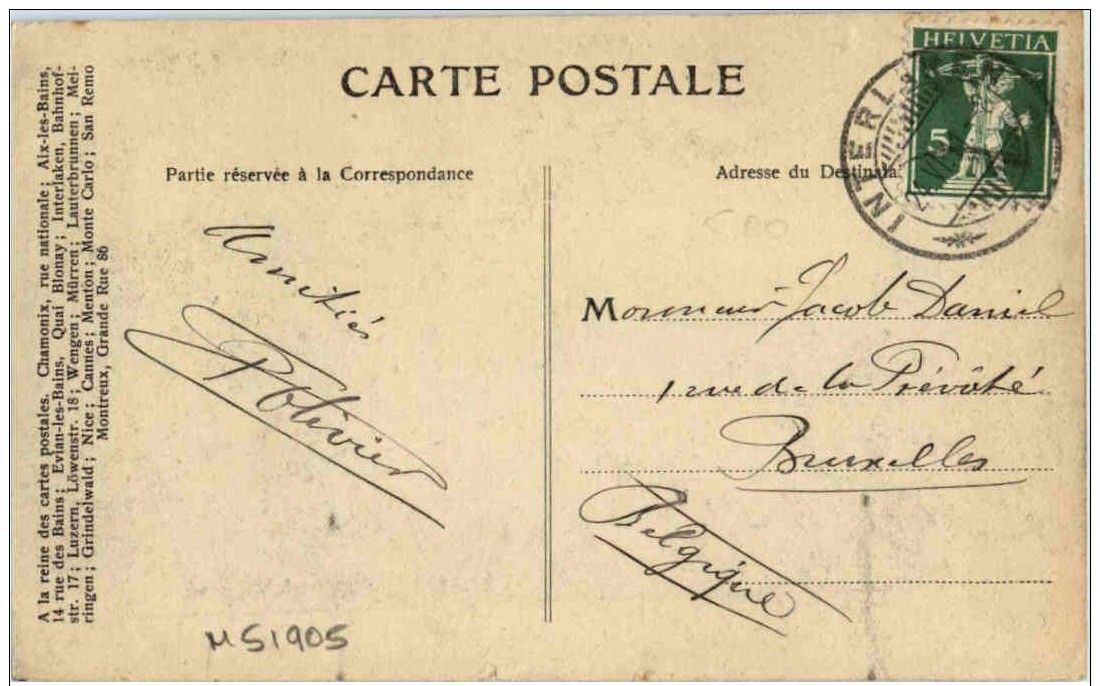 CARTE POSTALE
HELVETIA
5
INTERLAKEN
Partie réservée à la Correspondance
Adresse du Destinata
Amitiés
POlivier
Monsieur Jacob Daniel
1 rue de la Prévôté
Bruxelles
Belgique
A la reine des cartes postales. Chamonix, rue nationale; Aix-les-Bains,
14 rue des Bains; Evian-les-Bains, Quai Blonay; Interlaken, Bahnhof-
str. 17; Luzern, Löwenstr. 18; Wengen; Mürren; Lauterbrunnen; Mei-
ringen; Grindelwald; Nice; Cannes; Menton; Monte Carlo; San Remo
Montreux, Grande Rue 86
MS1905